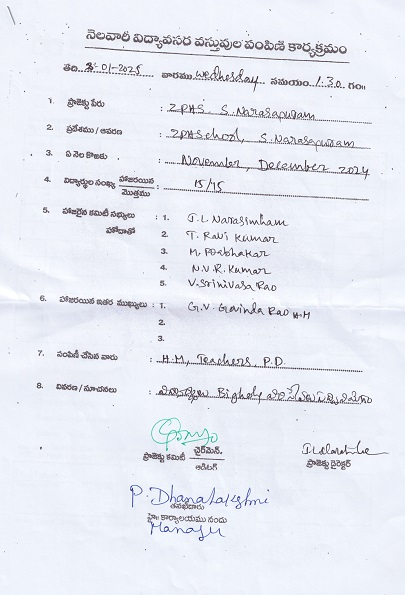 నెలవారీ విద్యావసర వస్తువుల పంపిణీ కార్యక్రమం
తేది : 8-01-2025 వారము Wednesday సమయం 1.30 గం॥
1. ప్రాజెక్టు పేరు : ZPHS, S. Narasapuram
2. ప్రదేశము / ఆవరణ : ZPHSchool, S. Narasapuram
3. ఏ నెల కొఱకు : November, December 2024
4. విద్యార్థుల సంఖ్య హాజరయిన / మొత్తము : 15/15
5. హాజరైన కమిటీ సభ్యులు : 1. J. L Narasimham
హోదాతో 2. T. Ravi Kumar
3. M. Prabhakar
4. N.V.R. Kumar
5. V. Srinivasa Rao
6. హాజరయిన ఇతర ముఖ్యులు : 1. G.V. Govinda Rao H.M
2.
3.
7. పంపిణీ చేసిన వారు : H.M, Teachers, P.D.
8. వివరణ / సూచనలు :
ప్రాజెక్టు కమిటీ చైర్మెన్. / ఆడిటర్
ప్రాజెక్టు డైరెక్టర్
P. Dhanalakshmi
తనఖీదారు
హై: కార్యాలయము నందు
Manager